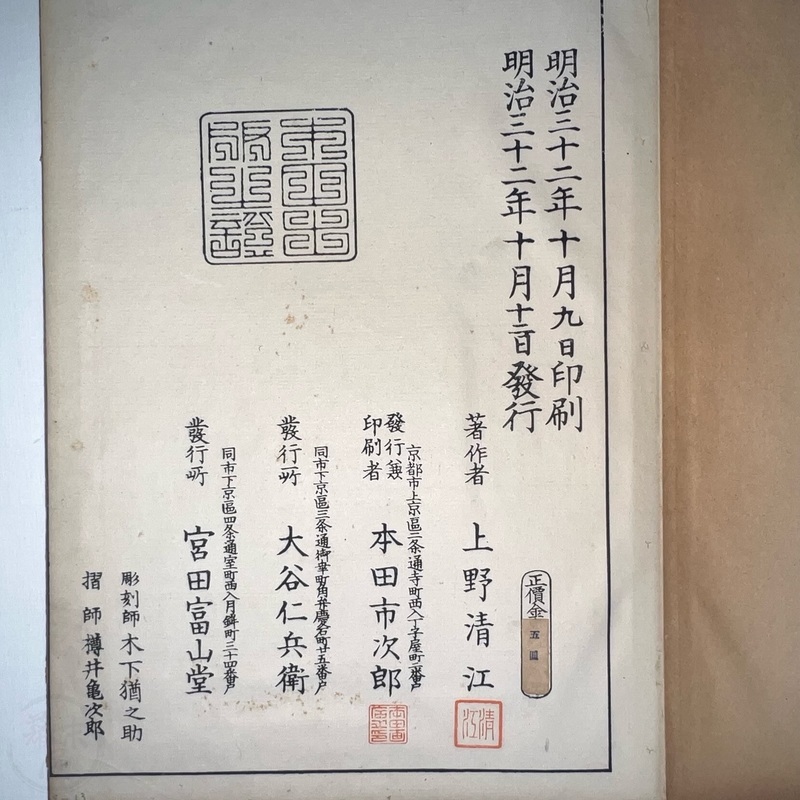 明治三十二年十月九日印刷
明治三十二年十月十二日發行
正價金
五圓
著作者 上野清江
清江
京都市上京區二条通寺町西入丁子屋町二番戸
發行兼印刷者 本田市次郎
同市下京區三条通御幸町角弁慶石町廿五番戸
發行所 大谷仁兵衛
同市下京區四条通室町西入月鉾町三十四番戸
發行所 宮田富山堂
彫刻師 木下猶之助
摺師 樽井亀次郎